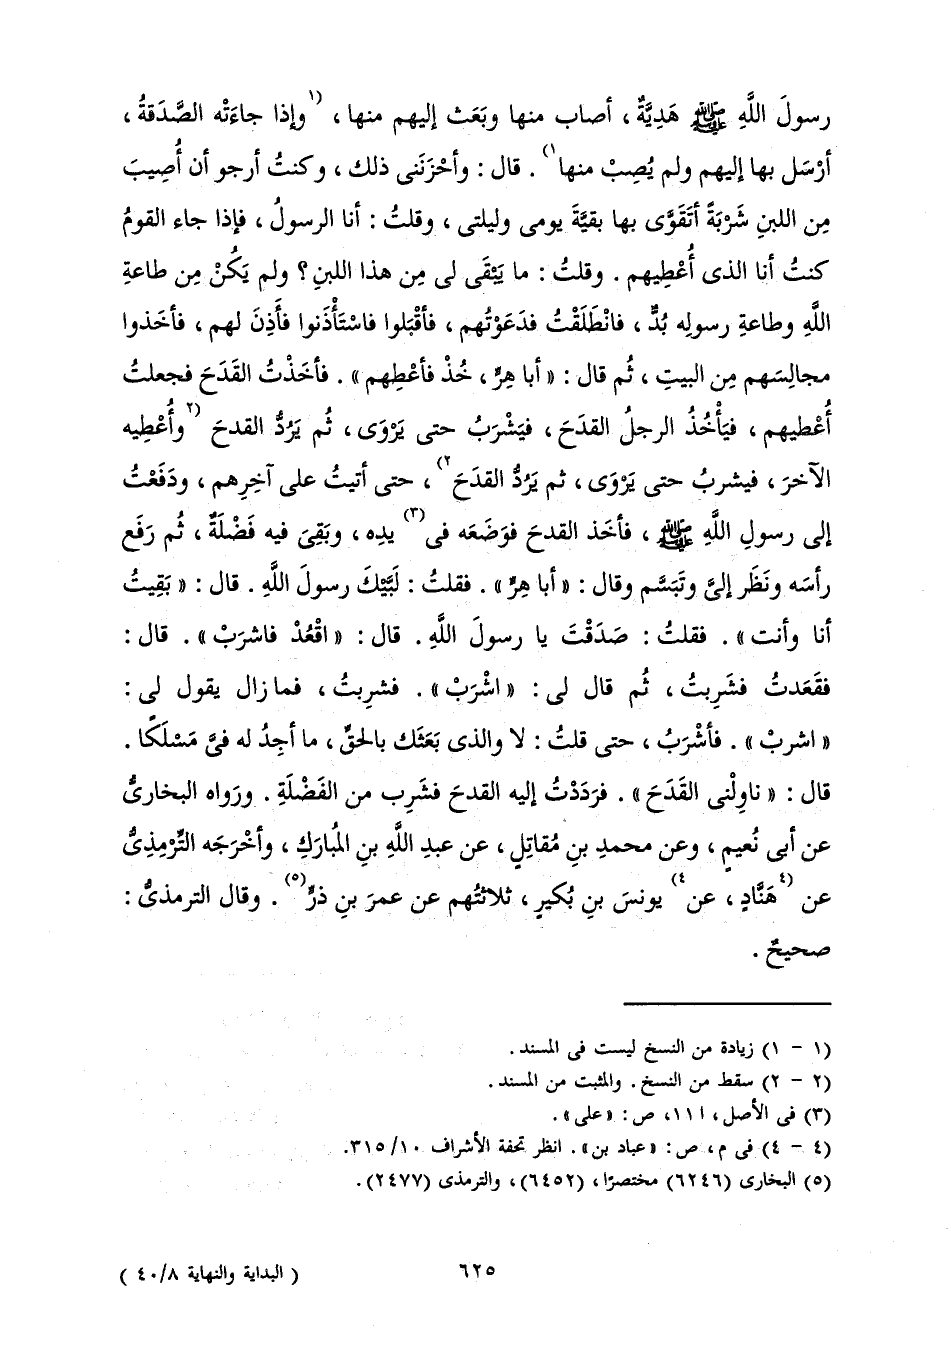 رسولَ اللَّهِ ﷺ هَدِيَّةٌ ، أصاب منها وبَعَث إليهم منها ، (١وإذا جاءَتْه الصَّدَقةُ ،
أرْسَل بها إليهم ولم يُصِبْ منها١) . قال : وأحْزَنَنى ذلك ، وكنتُ أرجو أن أُصِيبَ
مِن اللبنِ شَرْبَةً أتَقَوَّى بها بقيَّةَ يومى وليلتى ، وقلتُ : أنا الرسولُ ، فإذا جاء القومُ
كنتُ أنا الذى أُعْطِيهم . وقلتُ : ما يَبْقَى لى مِن هذا اللبنِ ؟ ولم يَكُنْ مِن طاعةِ
اللَّهِ وطاعةِ رسولِه بُدٌّ ، فانْطَلَقْتُ فدَعَوْتُهم ، فأقْبَلوا فاسْتَأْذَنوا فأَذِنَ لهم ، فأخَذوا
مجالِسَهم مِن البيتِ ، ثُم قال : « أبا هِرٍّ ، خُذْ فأعْطِهم » . فأخَذْتُ القَدَحَ فجعلتُ
أُعْطيهم ، فيَأْخُذُ الرجلُ القدَحَ ، فيَشْرَبُ حتى يَرْوَى ، ثُم يَرُدُّ القدحَ (٢وأُعْطِيه
الآخرَ ، فيشربُ حتى يَرْوَى ، ثم يَرُدُّ القدَحَ٢) ، حتى أتيتُ على آخِرِهم ، ودَفَعْتُ
إلى رسولِ اللَّهِ ﷺ ، فأخَذ القدحَ فوَضَعَه فى(٣) يدِه ، وبَقِىَ فيه فَضْلَةٌ ، ثُم رَفَع
رأسَه ونَظَر إلىَّ وتَبَسَّم وقال : « أبا هِرٍّ » . فقلتُ : لَبَّيْكَ رسولَ اللَّهِ . قال : « بَقِيتُ
أنا وأنت » . فقلتُ : صَدَقْتَ يا رسولَ اللَّهِ . قال : « اقْعُدْ فاشرَبْ » . قال :
فقَعَدتُ فشَرِبتُ ، ثُم قال لى : « اشْرَبْ » . فشرِبتُ ، فما زال يقول لى :
« اشربْ » . فأشْرَبُ ، حتى قلتُ : لا والذى بَعَثَك بالحقِّ ، ما أجِدُ له فىَّ مَسْلَكًا .
قال : « ناوِلْنى القَدَحَ » . فرَدَدْتُ إليه القدحَ فشَرِب من الفَضْلَةِ . ورَواه البخارىُّ
عن أبى نُعيمٍ ، وعن محمدِ بنِ مُقاتِلٍ ، عن عبدِ اللَّهِ بنِ المُبارَكِ ، وأخْرَجه التِّرْمِذِىُّ
عن (٤هَنَّادٍ ، عن٤) يونسَ بنِ بُكيرٍ ، ثلاثتُهم عن عمرَ بنِ ذَرٍّ(٥) . وقال الترمذىُّ :
صحيحٌ .
(١ - ١) زيادة من النسخ ليست فى المسند .
(٢ - ٢) سقط من النسخ . والمثبت من المسند .
(٣) فى الأصل، ١١١، ص: «على» .
(٤ - ٤) فى م، ص: «عباد بن» . انظر تحفة الأشراف ٣١٥/١٠.
(٥) البخارى (٦٢٤٦) مختصرًا، (٦٤٥٢)، والترمذى (٢٤٧٧).
٦٢٥
( البداية والنهاية ٤٠/٨ )